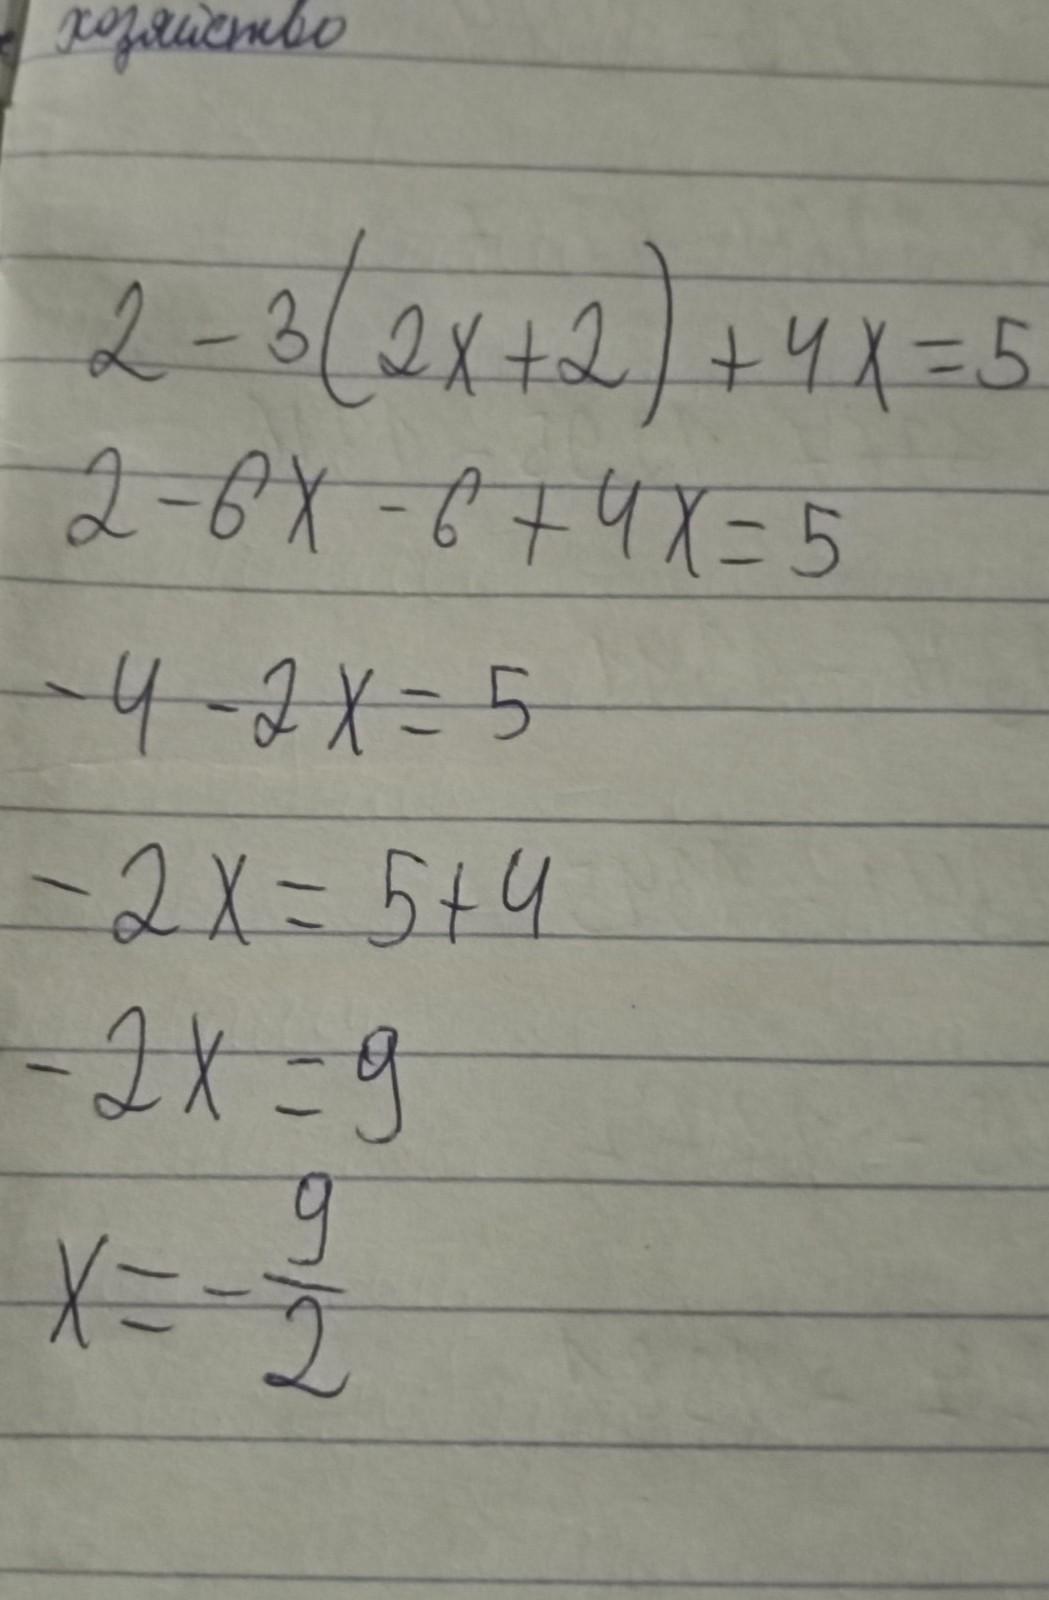 хозяйство
2 - 3(2x+2) + 4x = 5
2 - 6x - 6 + 4x = 5
- 4 - 2x = 5
- 2x = 5+4
- 2x = 9
x = - 9/2